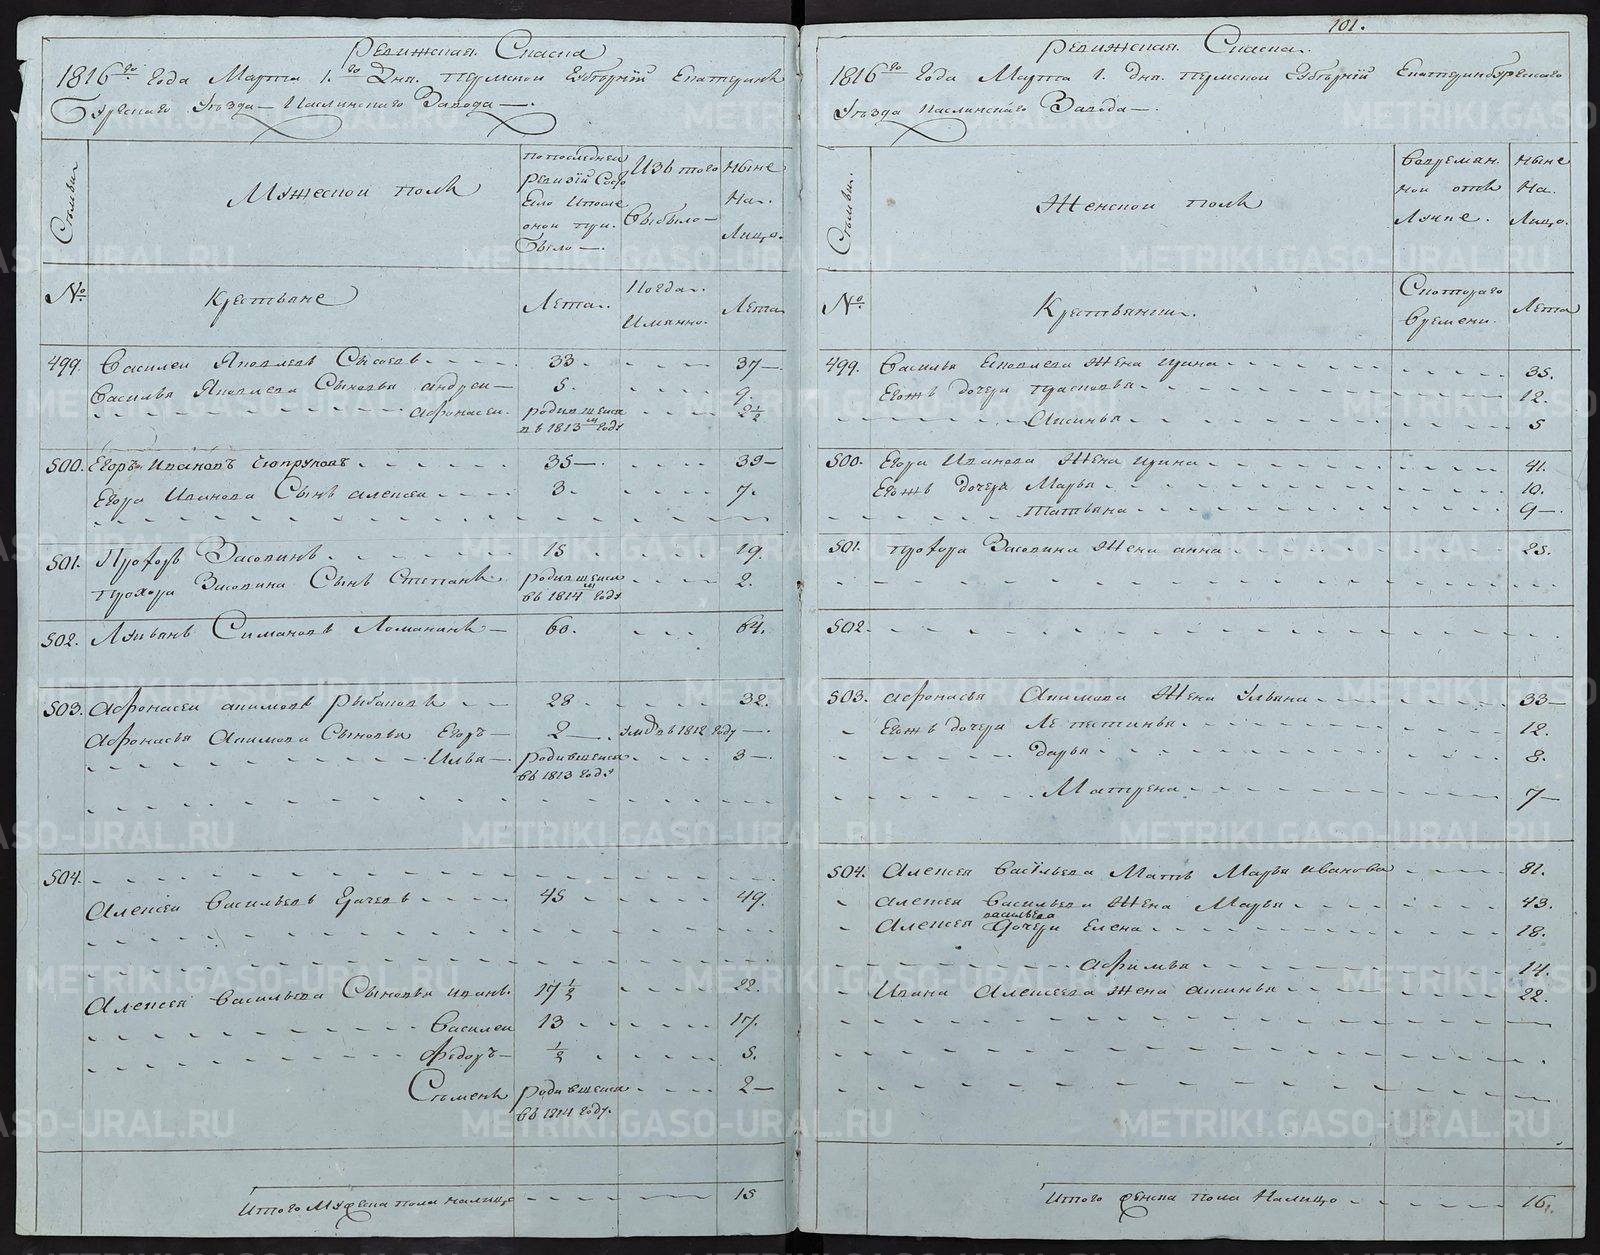 Ревижская Скаска
1816го года Марта 1.го Дня. Пермской Губернiи Екатерин
Бургскаго Уезда — Каслинскаго Завода —.
Семьи
Мужескои полъ
по последней
Ревизiи Сос
ело и после
онои при.
было —.
Изъ того
выбыло —
Ныне
На.
Лицо.
№
Крестьяне
Лета.
Когда.
Имянно.
Лета
499. Василеи Яковлевъ Сысоевъ 33 37
Василья Яковлева Сыновья андреи 5. 9.
афонасеи. родившеися 2½
въ 1813м году
500. Егоръ Ивановъ 35 39
Егора Иванова Сынъ алексеи 3. 7.
501. Прохоръ Засопинъ 15 19.
Прохора Засопина Сынъ Степанъ родившеися 2.
въ 1814м году
502. Симановъ Ломакинъ 60. 64.
503. Афонасеи акимовъ Рыбаковъ 28 32.
Афонасья Акимова Сыновья Егоръ 2 умре въ 1812 году
Илья родившеися 3
въ 1813 году
504.
Алексеи Васильевъ 45 49.
Алексея Васильева Сыновья иванъ. 17½ 22.
Василеи 13 17.
Федоръ ½ 5.
Семенъ родившеися 2
въ 1814 году.
Итого Мужеска пола налицо 15
101.
Ревижская Скаска.
1816го года Марта 1. дня. Пермской Губернiи Екатеринбургскаго
Уезда Каслинскаго Завода —.
Семьи.
Женскои полъ
Во времян.
нои отлу
Лучке.
Ныне
На.
Лицо.
№
Крестьянки.
С котораго
времени.
Лета
499. Василья Яковлева Жена ирина 35.
Егожъ дочери прасковья 12.
Аксинья 5
500. Егора Иванова Жена ирина 41.
Егожъ дочери Марья 10.
Татьяна 9
501. прохора Засопина Жена анна 25.
502.
503. Афонасья Акимова Жена Ульяна 33
Егожъ дочери 12.
дарья 8.
Матрена 7
504. Алексея Васильева Мать Марья иванова 81.
Алексея Васильева Жена Марья 43.
васильева
Алексея дочери Елена 18.
афимья 14.
Ивана Алексеева жена аксинья 22.
Итого женска пола Налицо 16.
METRIKI.GASO-URAL.RU